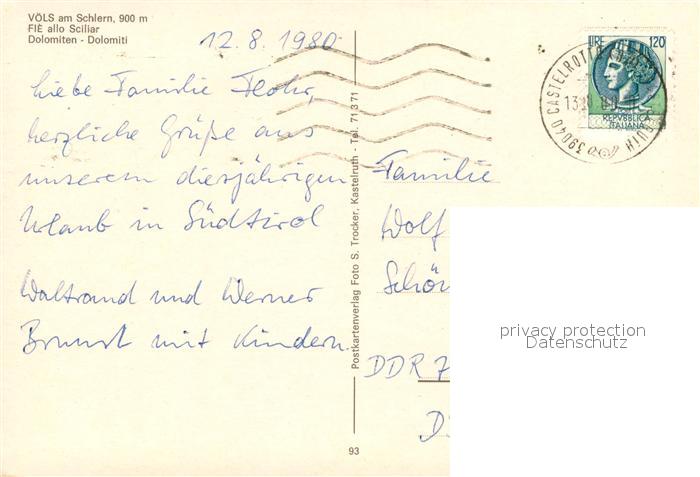 VÖLS am Schlern, 900 m
FIÈ allo Sciliar
Dolomiten - Dolomiti
12.8.1980
Liebe Familie Flohr,
herzliche Grüße aus
unserem diesjährigen
Urlaub in Südtirol
Waltraud und Werner
mit Kindern.
Postkartenverlag Foto S. Trocker, Kastelruth - Tel. 71371
93
LIRE 120
REPVBBLICA
ITALIANA
39040 CASTELROTTO
Familie
Wolf
Schön
DDR 7
D
privacy protection
Datenschutz